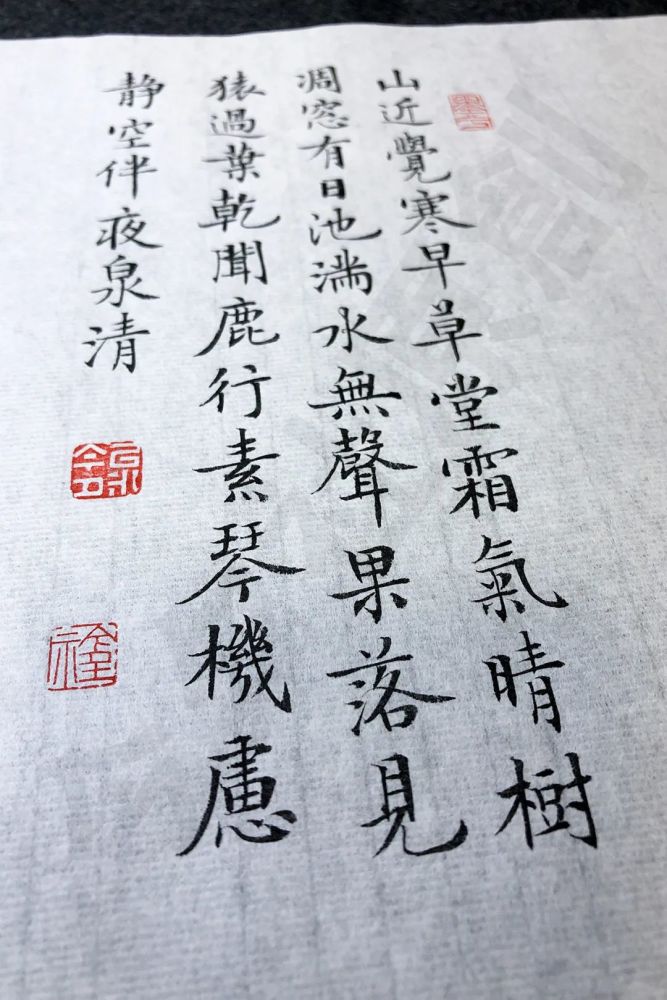 山近覺寒早草堂霜氣晴樹
凋窓有日池滿水無聲果落見
猿過葉乾聞鹿行素琴機慮
静空伴夜泉清